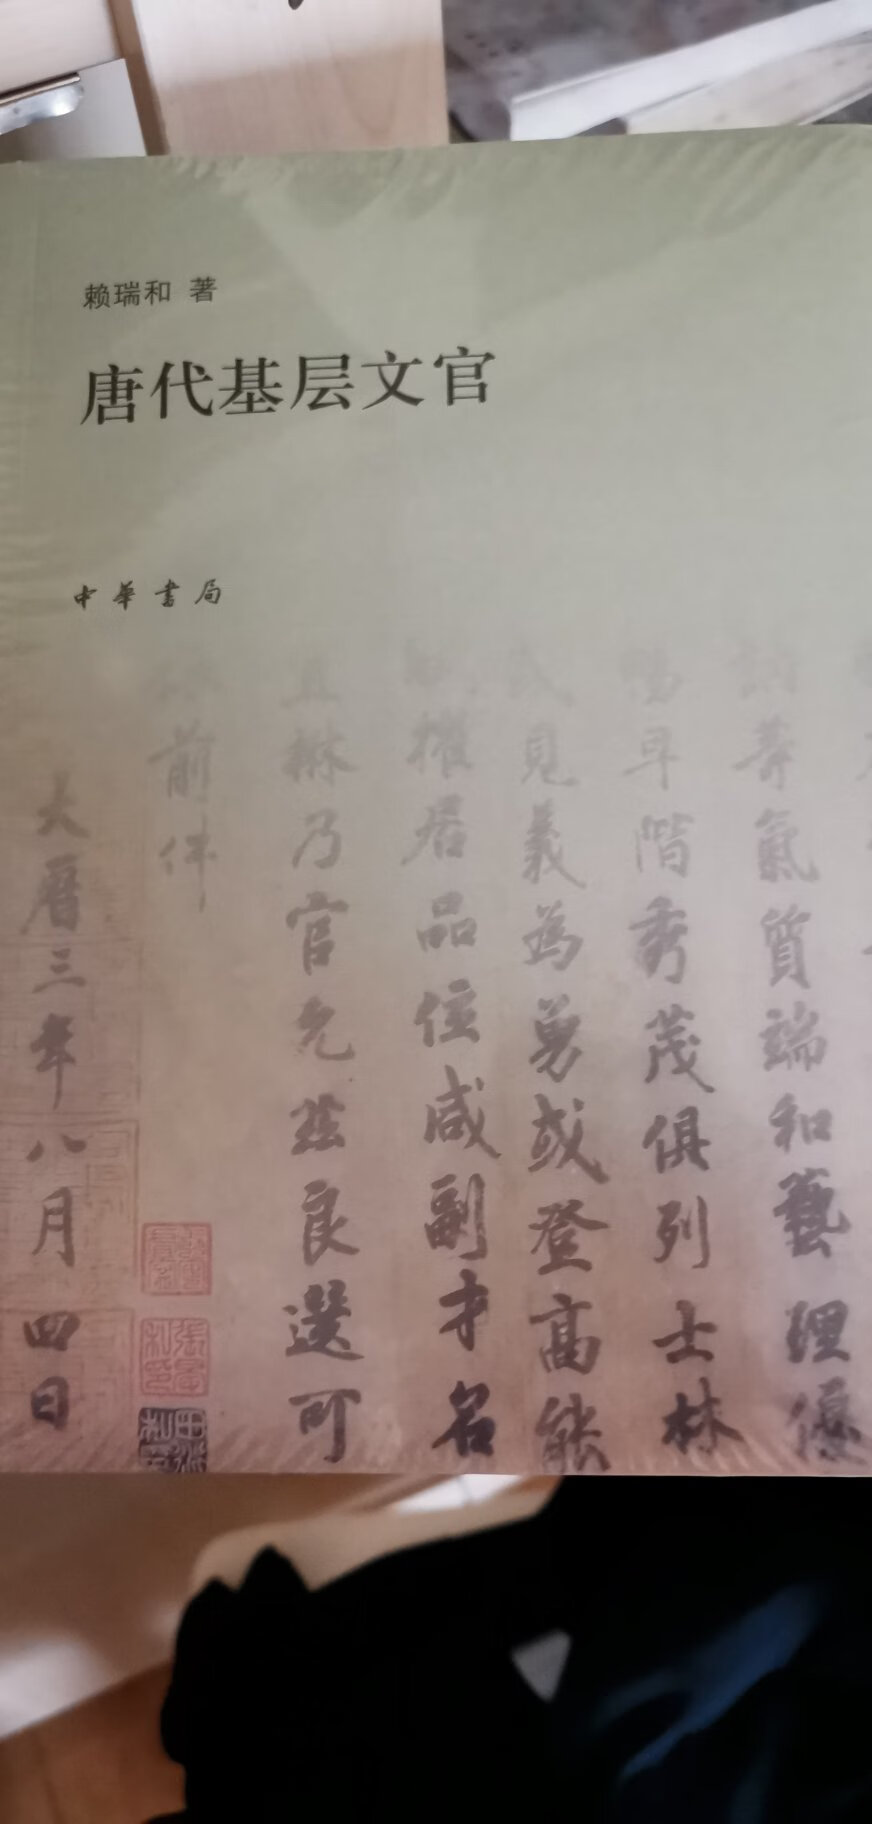 赖瑞和 著
唐代基层文官
中華書局
諸葬氣質端和藝理優
暢早階秀茂俱列士林
見義為勇或登高能
擢居品位咸副才名
乃官允兹良選可
前件
大曆三年八月四日